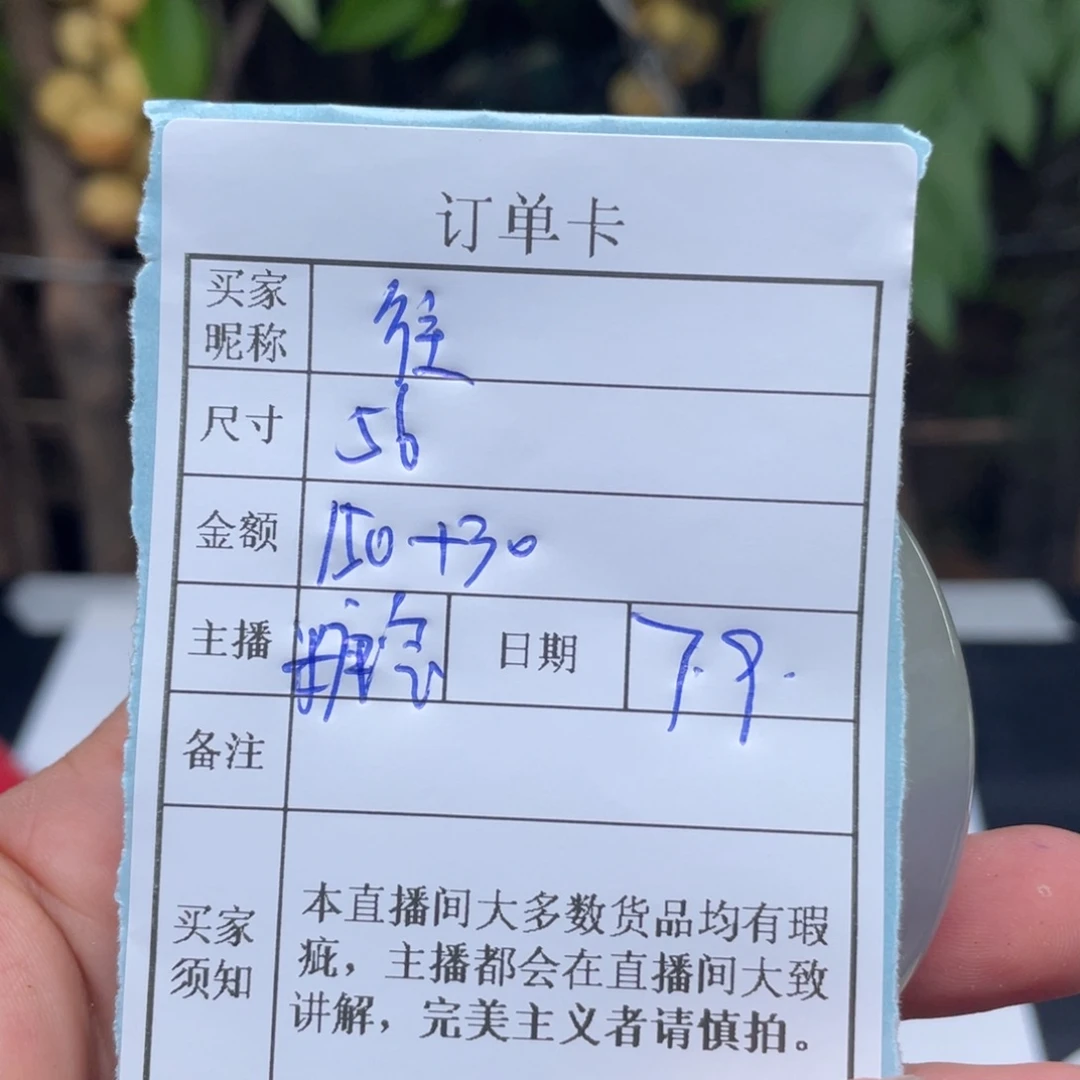 订单卡
买家昵称 往
尺寸 56
金额 150+30
主播 日期 7.9.
备注
买家须知
本直播间大多数货品均有瑕
疵，主播都会在直播间大致
讲解，完美主义者请慎拍。